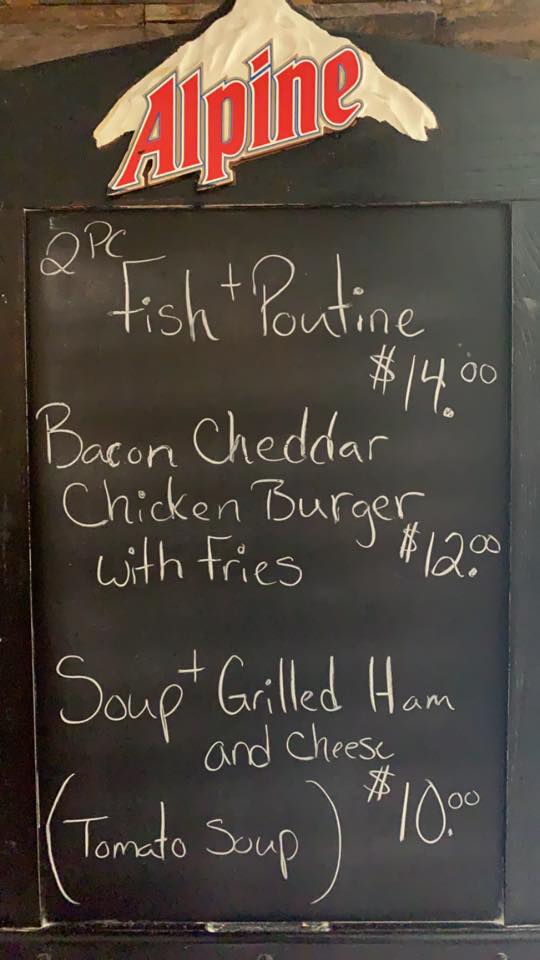 Alpine
2 PC
Fish + Poutine
$14.00
Bacon Cheddar
Chicken Burger
with Fries $12.00
Soup + Grilled Ham
and Cheese
$10.00
(Tomato Soup)